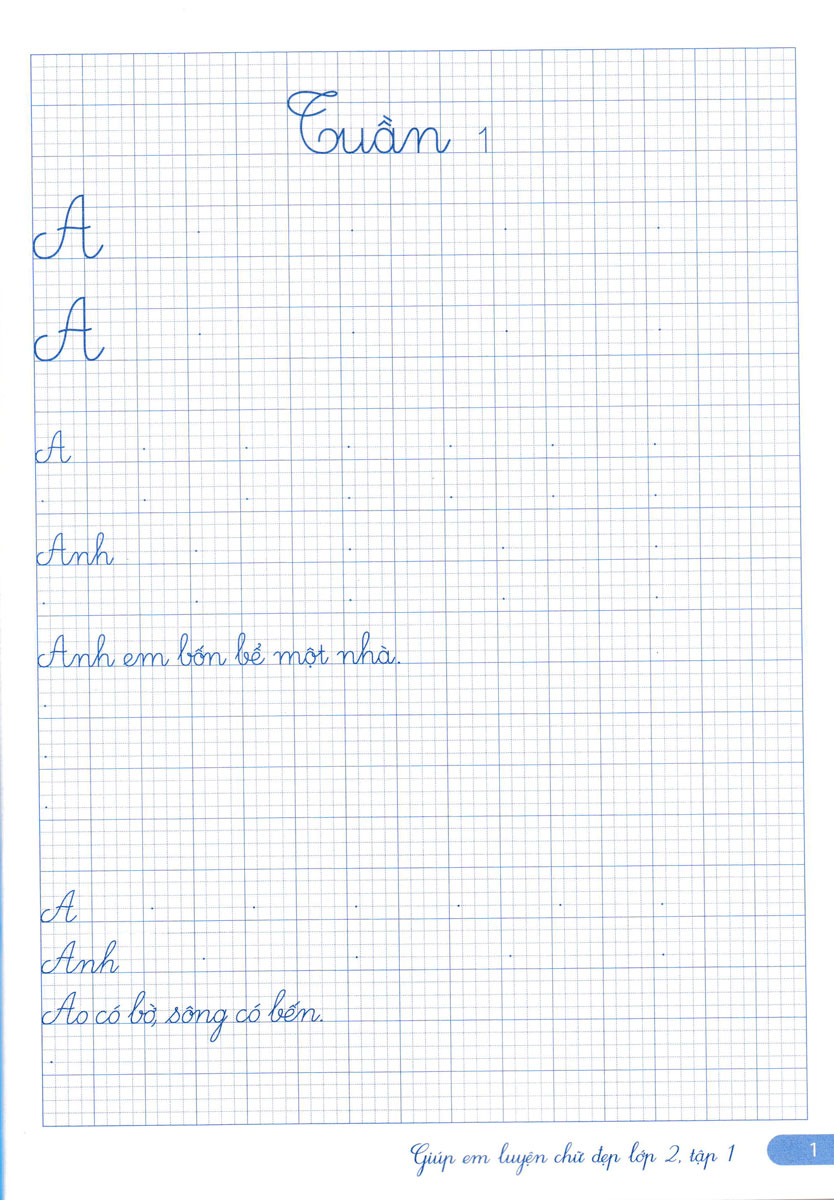 Tuần 1
A
A
A
Anh
Anh em bốn bể một nhà.
A
Anh
Ao có bờ, sông có bến.
Giúp em luyện chữ đẹp lớp 2, tập 1
1